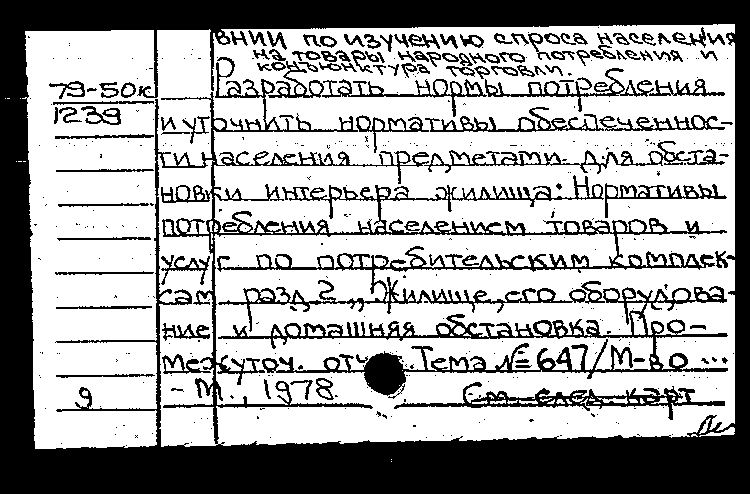 ВНИИ по изучению спроса населения
на товары народного потребления и
конъюнктура торговли.
79-50к Разработать нормы потребления
1239 и уточнить нормативы обеспеченнос-
ти населения предметами для обста-
новки интерьера жилища: Нормативы
потребления населением товаров и
услуг по потребительским комплек-
сам разд 2 „Жилище, его оборудова-
ние и домашняя обстановка. Про-
межуточ. отч. Тема № 647/М-во ...
9 - М., 1978 См. след. карт